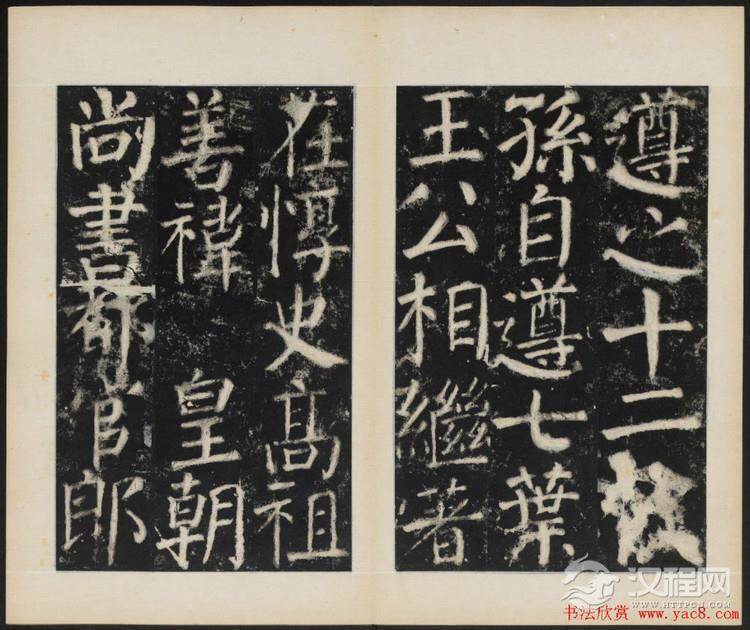 遵之十二
孫自遵七葉
王公相繼著
在惇史高祖
善禕 皇朝
尚書都官郎
汉程网
WWW.HTTPCN.COM
书法欣赏 www.yac8.com